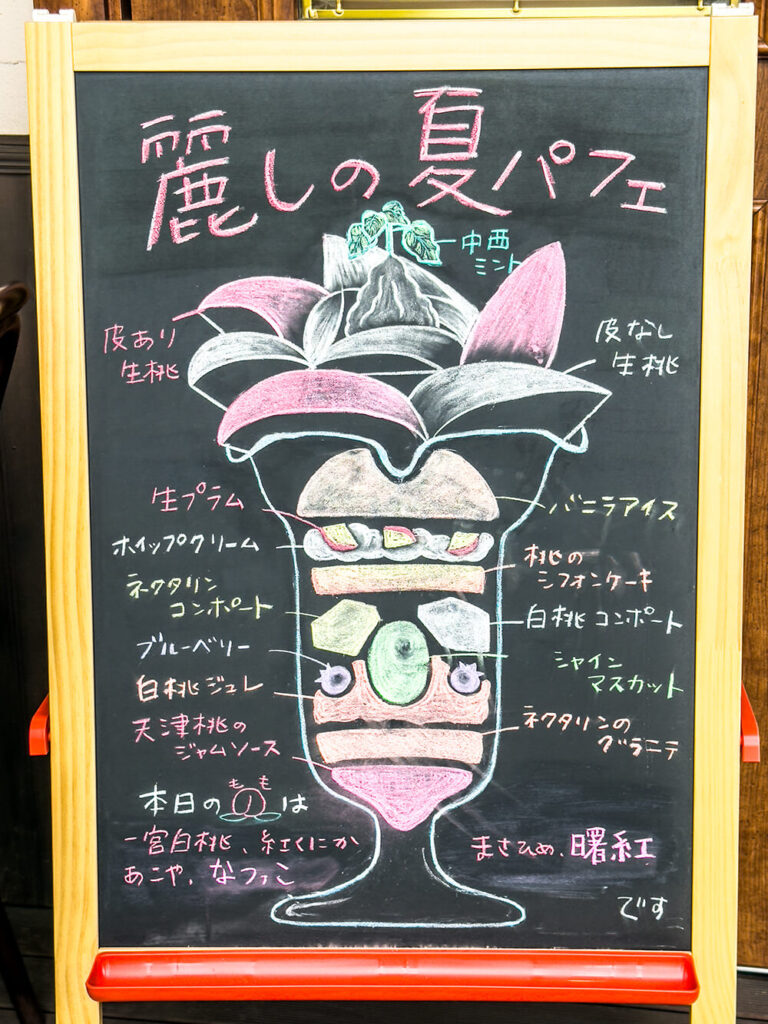 麗しの夏パフェ
中西
ミント
皮あり
生桃
皮なし
生桃
生プラム
バニラアイス
ホイップクリーム
桃の
シフォンケーキ
ネクタリン
コンポート
白桃コンポート
ブルーベリー
シャイン
マスカット
白桃ジュレ
ネクタリンの
グラニテ
天津桃の
ジャムソース
もも
本日の は
一宮白桃、紅くにか
あこや、なつっこ
まさひめ、曙紅
です